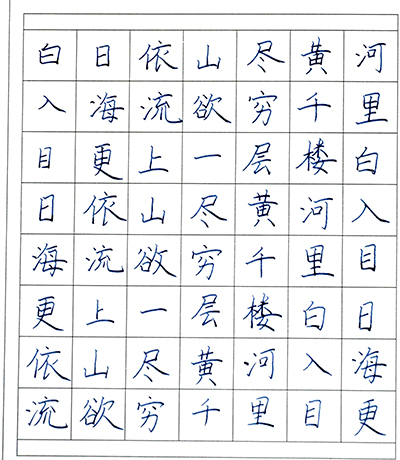 白日依山尽黄河
入海流欲穷千里
目更上一层楼白
日依山尽黄河入
海流欲穷千里目
更上一层楼白日
依山尽黄河入海
流欲穷千里目更